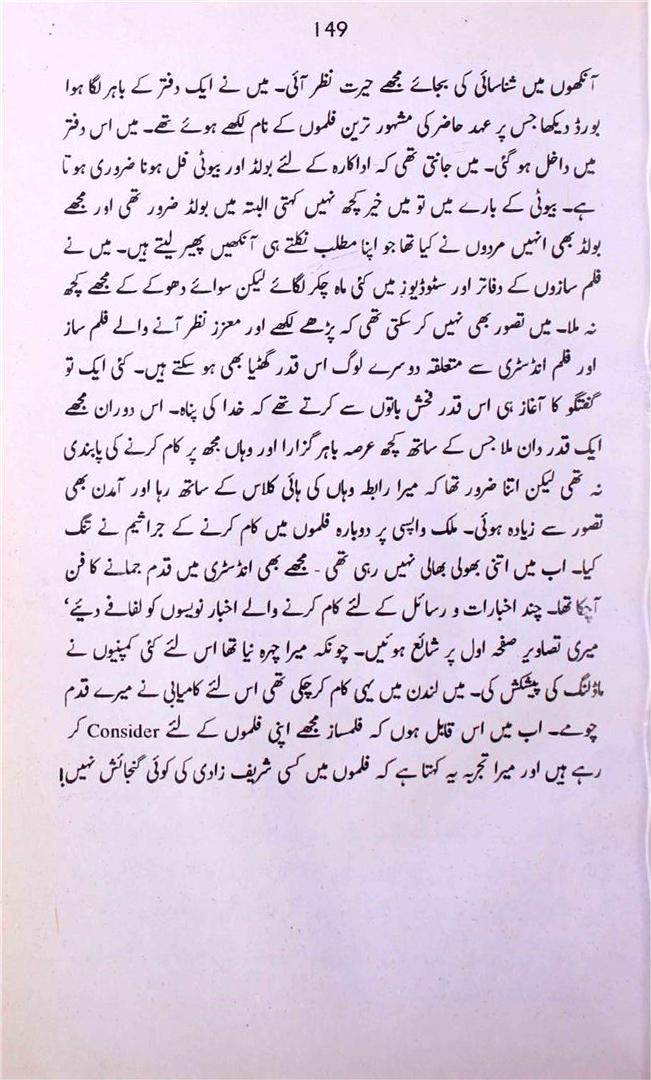 149
آنکھوں میں شناسائی کی بجائے مجھے حیرت نظر آئی۔ میں نے ایک دفتر کے باہر لگا ہوا
بورڈ دیکھا جس پر عہد حاضر کی مشہور ترین فلموں کے نام لکھے ہوئے تھے۔ میں اس دفتر
میں داخل ہو گئی۔ میں جانتی تھی کہ اداکارہ کے لئے بولڈ اور بیوٹی فل ہونا ضروری ہوتا
ہے۔ بیوٹی کے بارے میں تو میں خیر کچھ نہیں کہتی البتہ میں بولڈ ضرور تھی اور مجھے
بولڈ بھی انہیں مردوں نے کیا تھا جو اپنا مطلب نکلتے ہی آنکھیں پھیر لیتے ہیں۔ میں نے
فلم سازوں کے دفاتر اور سٹوڈیوز میں کئی ماہ چکر لگائے لیکن سوائے دھوکے کے مجھے کچھ
نہ ملا۔ میں تصور بھی نہیں کر سکتی تھی کہ پڑھے لکھے اور معزز نظر آنے والے فلم ساز
اور فلم انڈسٹری سے متعلقہ دوسرے لوگ اس قدر گھٹیا بھی ہو سکتے ہیں۔ کئی ایک تو
گفتگو کا آغاز ہی اس قدر فحش باتوں سے کرتے تھے کہ خدا کی پناہ۔ اس دوران مجھے
ایک قدر دان ملا جس کے ساتھ کچھ عرصہ باہر گزارا اور وہاں مجھ پر کام کرنے کی پابندی
نہ تھی لیکن اتنا ضرور تھا کہ میرا رابطہ وہاں کی ہائی کلاس کے ساتھ رہا اور آمدن بھی
تصور سے زیادہ ہوئی۔ ملک واپسی پر دوبارہ فلموں میں کام کرنے کے جراثیم نے تنگ
کیا۔ اب میں اتنی بھولی بھالی نہیں رہی تھی - مجھے بھی انڈسٹری میں قدم جمانے کا فن
آچکا تھا۔ چند اخبارات و رسائل کے لئے کام کرنے والے اخبار نویسوں کو لفافے دیئے‘
میری تصاویر صفحہ اول پر شائع ہوئیں۔ چونکہ میرا چہرہ نیا تھا اس لئے کئی کمپنیوں نے
ماڈلنگ کی پیشکش کی۔ میں لندن میں یہی کام کرچکی تھی اس لئے کامیابی نے میرے قدم
چومے۔ اب میں اس قابل ہوں کہ فلمساز مجھے اپنی فلموں کے لئے Consider کر
رہے ہیں اور میرا تجربہ یہ کہتا ہے کہ فلموں میں کسی شریف زادی کی کوئی گنجائش نہیں!